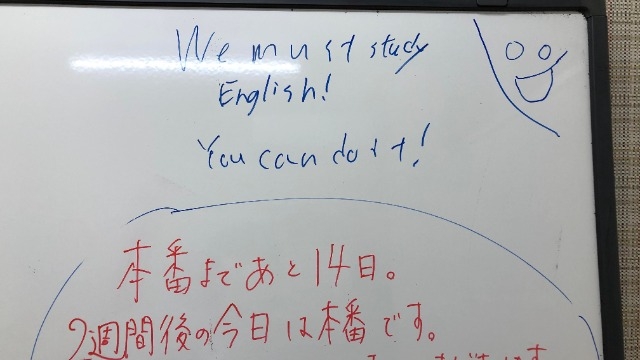 We must study
English!
You can do it!
本番まであと14日。
2週間後の今日は本番です。